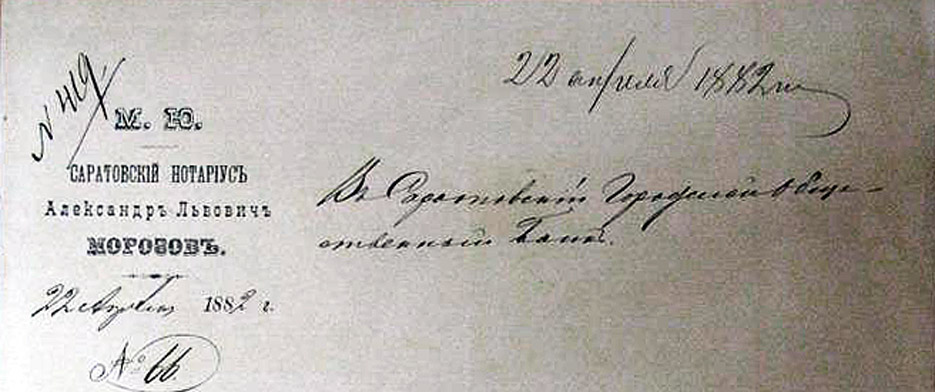 22 апреля 1882 г.
N 419
М. Ю.
САРАТОВСКІЙ НОТАРІУСЪ
Александръ Львовичъ
МОРОЗОВЪ.
22 Апреля 1882 г.
№ 66
Въ Саратовскій Городской обще-
ственный Банкъ.